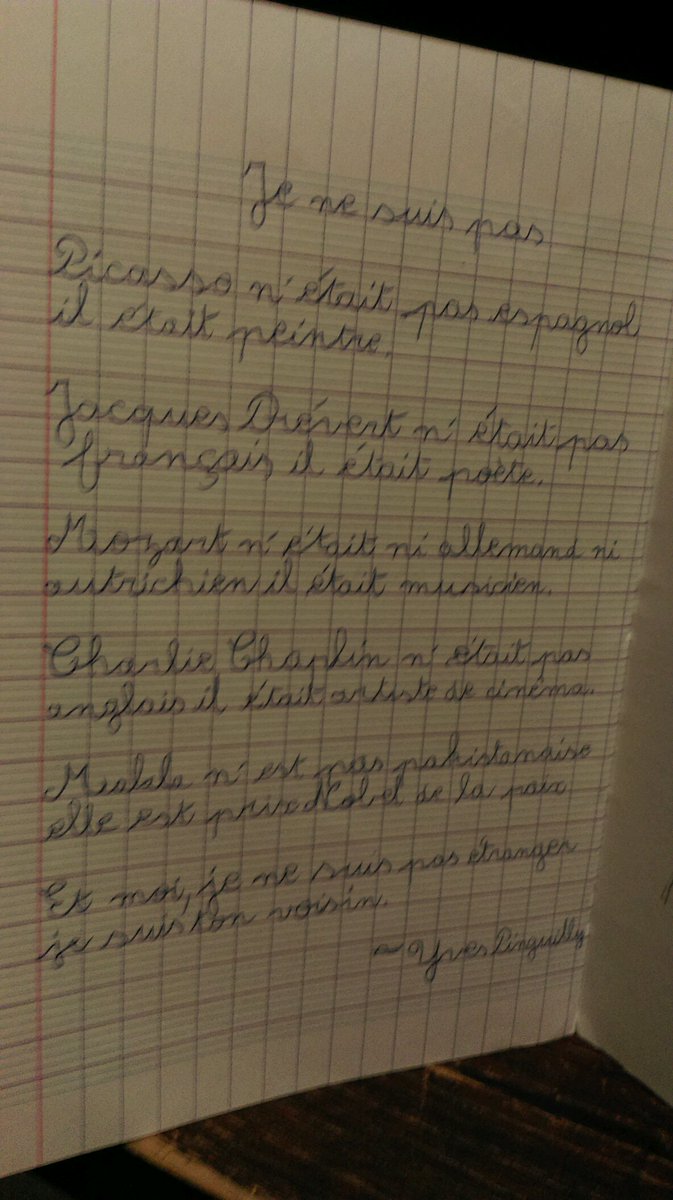 Je ne suis pas
Picasso n'était pas espagnol
il était peintre.
Jacques Prévert n'était pas
français il était poète.
Mozart n'était ni allemand ni
autrichien il était musicien.
Charlie Chaplin n'était pas
anglais il était artiste de cinéma.
Malala n'est pas pakistanaise
elle est prix Nobel de la paix
Et moi, je ne suis pas étranger
je suis ton voisin.
~ Yves Pinguilly